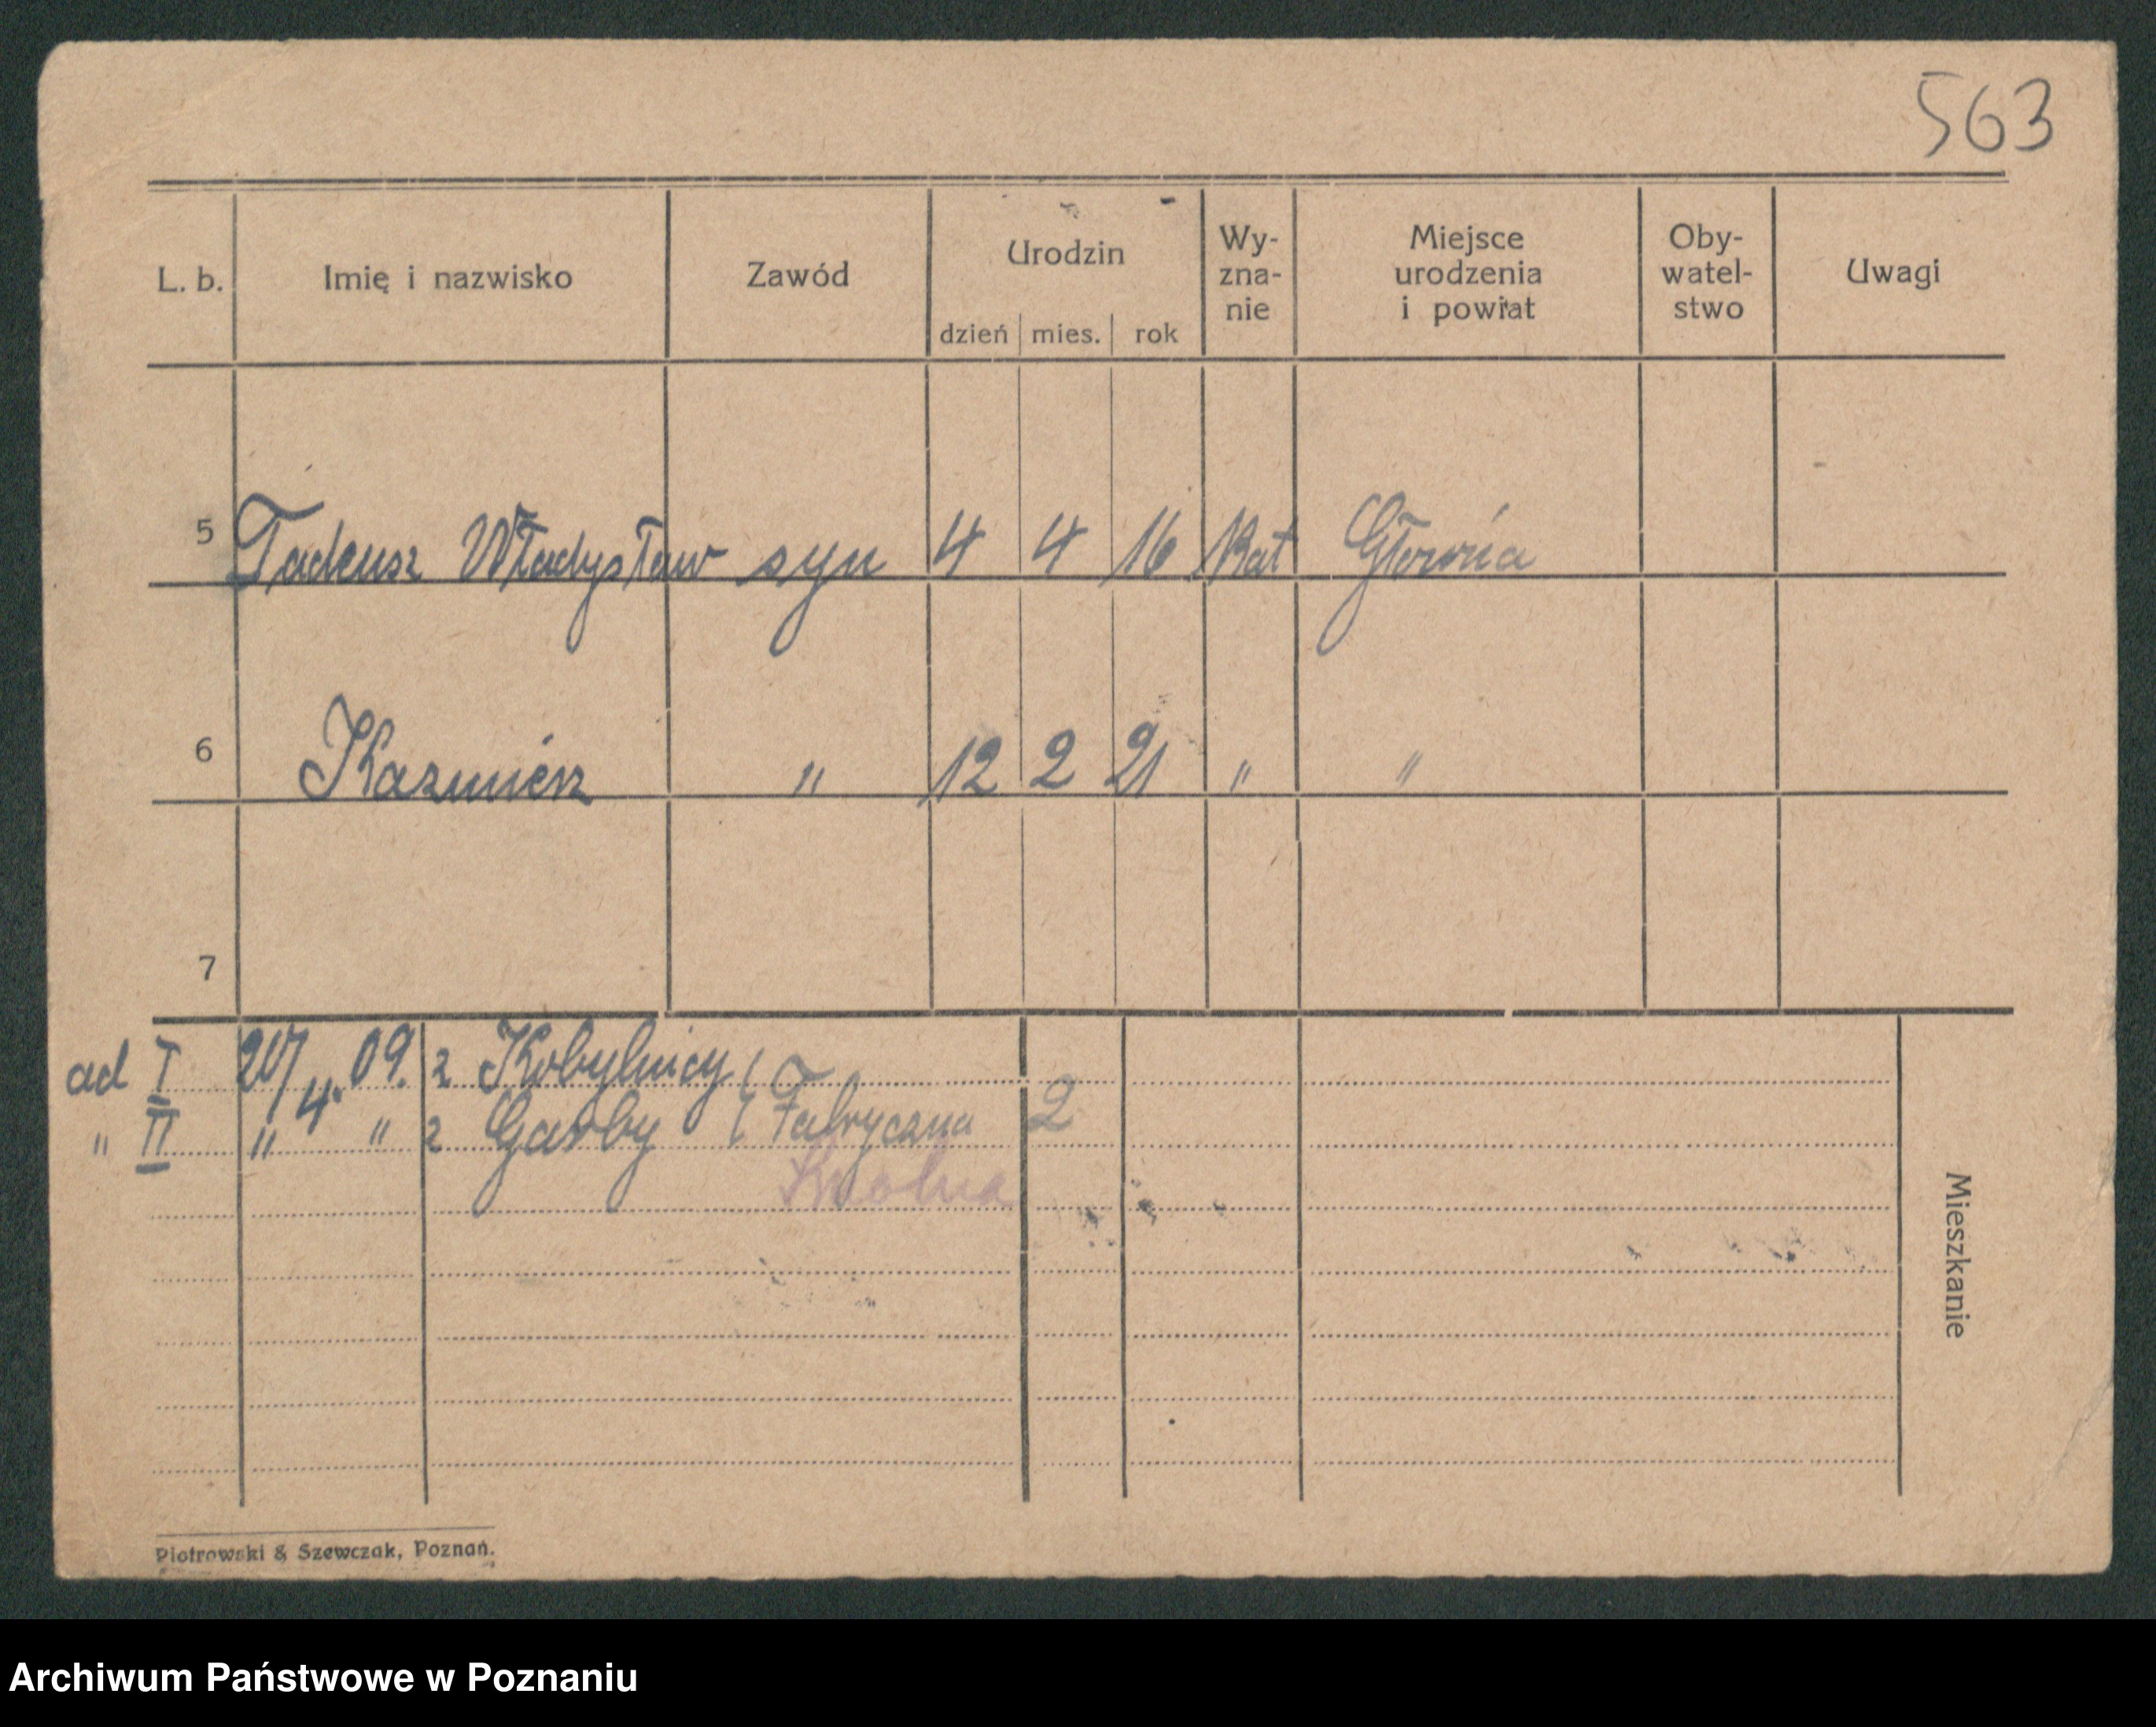 563
L. b. Imię i nazwisko Zawód Urodzin dzień mies. rok Wy-zna-nie Miejsce urodzenia i powiat Oby-watel-stwo Uwagi
5 Tadeusz Władysław syn 4 4 16 Kat Głowna
6 Kazmierz " 12 2 21 " "
7
ad I 20/4. 09. z Kobylnicy
" II " " z Garby Fabryczna 2
Mieszkanie
Piotrowski & Szewczak, Poznań.
Archiwum Państwowe w Poznaniu